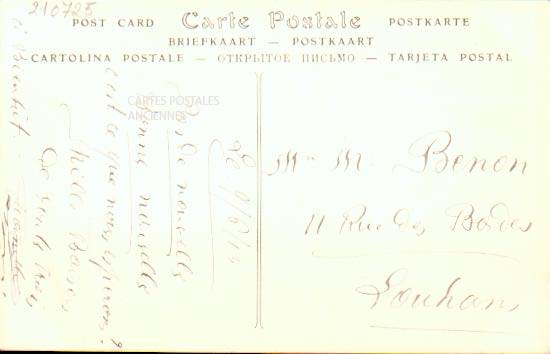 210725
POST CARD Carte Postale POSTKARTE
BRIEFKAART — POSTKAART
CARTOLINA POSTALE — ОТКРЫТОЕ ПИСЬМО — TARJETA POSTAL
CARTES POSTALES
ANCIENNES
de nouvelle
bonne nouvelle
c'est ce que nous espérons?
Mille Baisers
De
à Bientôt
M M. Benon
11 Rue des Bordes
Louhans